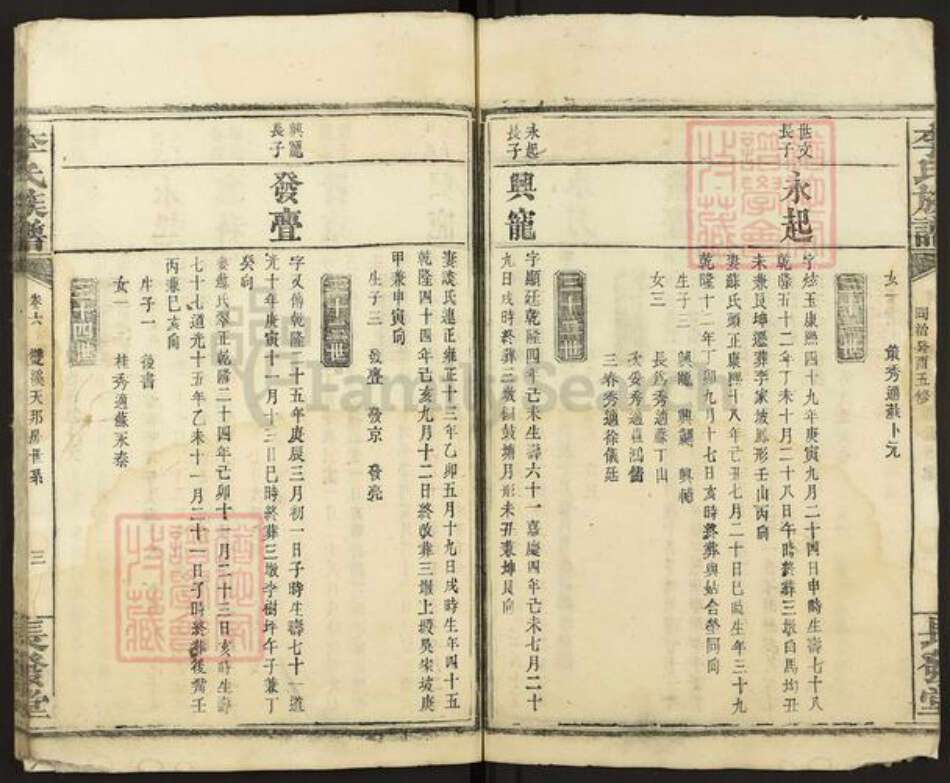 李氏族譜
同治癸酉五修
長發堂
女一
菊秀適蘇卜元
三十一世
世文
長子
永起
字炫玉康熙四十九年庚寅九月二十四日申時生壽七十八
乾隆五十二年丁未十月二十八日午時終葬三墩白馬㘭丑
未兼艮坤遷葬李家坡鳳形壬山丙向
妻蘇氏頭正康熙十八年己丑七月二十日巳時生年三十九
乾隆十二年丁卯九月十七日亥時終葬與姑合塋同向
生子三
興龍
興
興
女三
長為秀適蘇丁山
次委秀適
鴻
三春秀適徐儀廷
三十二世
永起
長子
興龍
字顯廷乾隆四年己未生壽六十一嘉慶四年己未七月二十
九日戌時終葬三墩銅鼓塘月形未丑兼坤艮向
妻談氏連正雍正十三年乙卯五月十九日戌時生年四十五
乾隆四十四年己亥九月十二日終改葬三墩上塅吳宋坡庚
甲兼申寅向
生子三
發疊
發京
發亮
三十三世
興龍
長子
發疊
字又僑乾隆二十五年庚辰三月初一日子時生壽七十一道
光十年庚寅十一月十三日巳時終葬三墩李樹坪午子兼丁
癸向
妻蘇氏翠正乾隆二十四年己卯十一月二十三日亥時生壽
七十七道光十五年乙未十一月二十一日子時終葬後嘴壬
丙兼巳亥向
生子一
後書
女一
桂秀適蘇永泰
三十四世
李氏族譜
卷六
雙溪天那房世系
三
長發堂